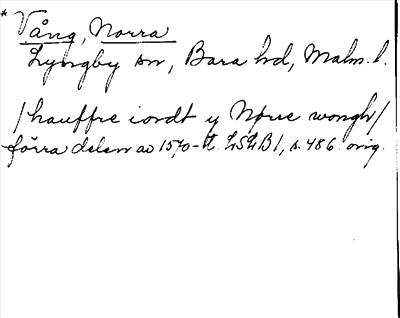 * Vång, Norra
Lyngby sn, Bara hd, Malm. l.
/hauffre iordt y Nørre wongh/
förra delen av 1570-t. LSLB1, s. 486. orig.